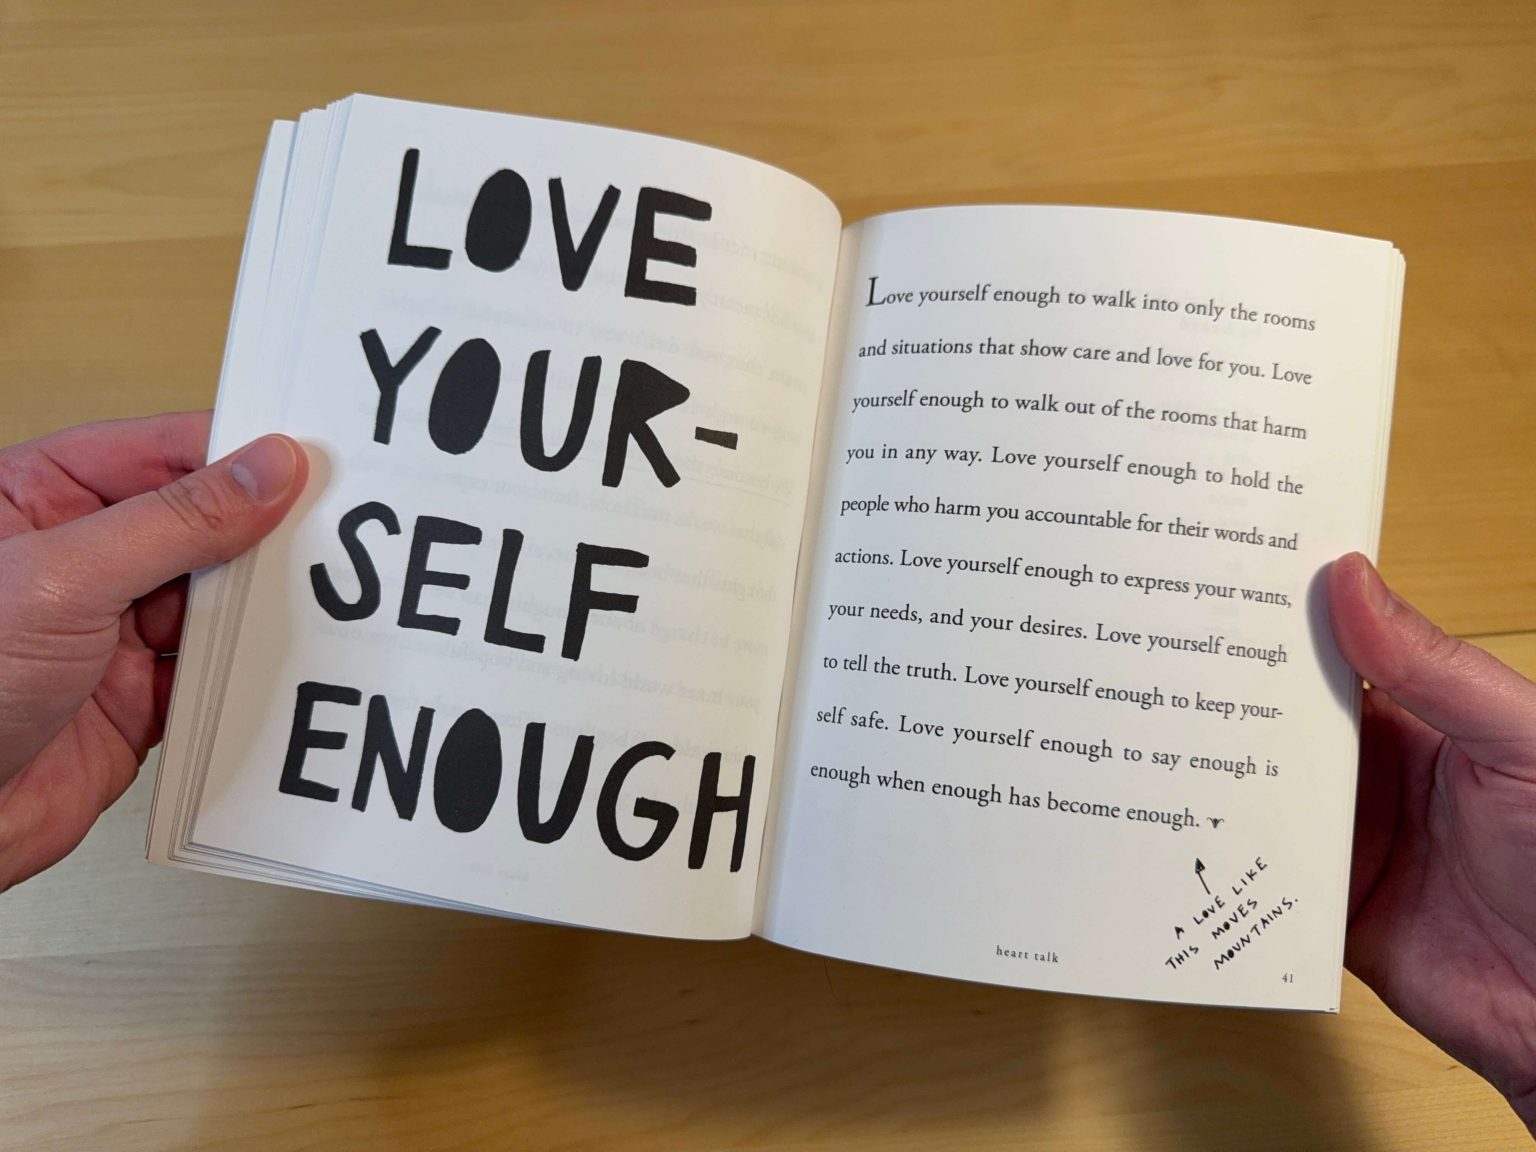 LOVE
YOUR-
SELF
ENOUGH
Love yourself enough to walk into only the rooms
and situations that show care and love for you. Love
yourself enough to walk out of the rooms that harm
you in any way. Love yourself enough to hold the
people who harm you accountable for their words and
actions. Love yourself enough to express your wants,
your needs, and your desires. Love yourself enough
to tell the truth. Love yourself enough to keep your-
self safe. Love yourself enough to say enough is
enough when enough has become enough.
A LOVE LIKE
THIS MOVES
MOUNTAINS.
heart talk
41